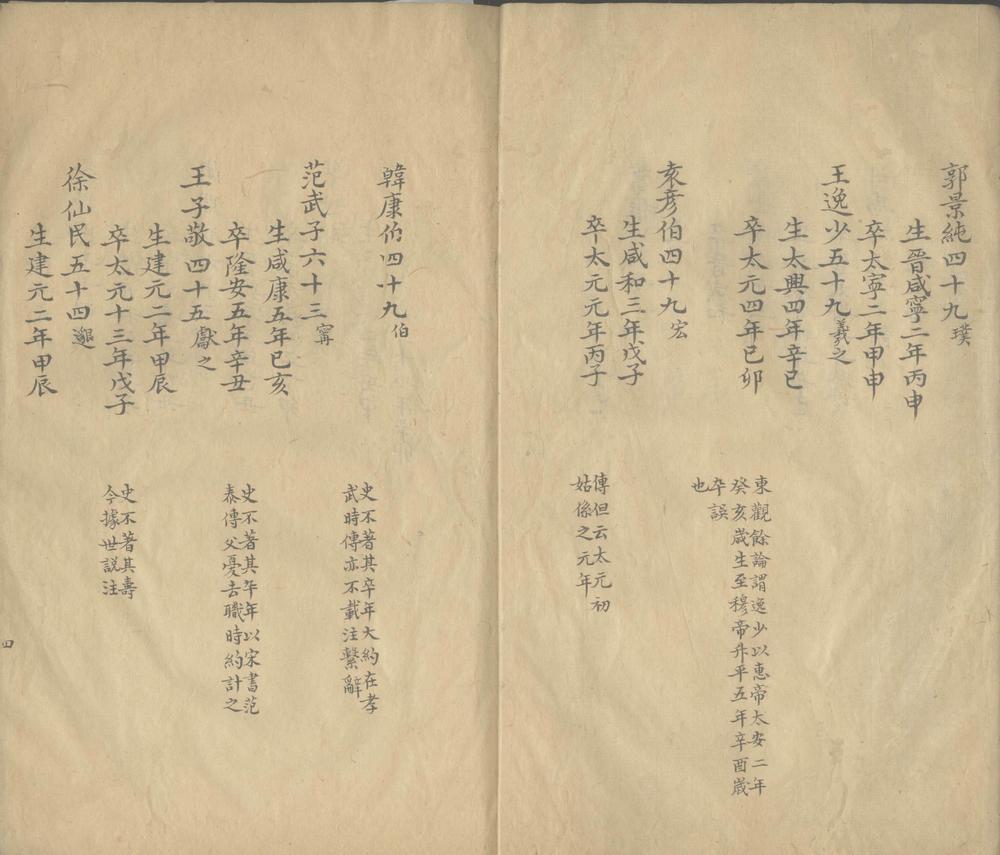 郭景純四十九璞
生晉咸寧二年丙申
卒太寧二年甲申
王逸少五十九羲之
生太興四年辛巳
卒太元四年己卯
東觀餘論謂逸少以惠帝太安二年
癸亥歲生至穆帝升平五年辛酉歲
卒誤
也
袁彥伯四十九宏
生咸和三年戊子
卒太元元年丙子
傳但云太元初
姑係之元年
韓康伯四十九伯
史不著其卒年大約在孝
武時傳亦不載注繫辭
范武子六十三甯
生咸康五年已亥
卒隆安五年辛丑
史不著其年以宋書范
泰傳父憂去職時約計之
王子敬四十五獻之
生建元二年甲辰
卒太元十三年戊子
史不著其壽
今據世説注
徐仙民五十四邈
生建元二年甲辰
四